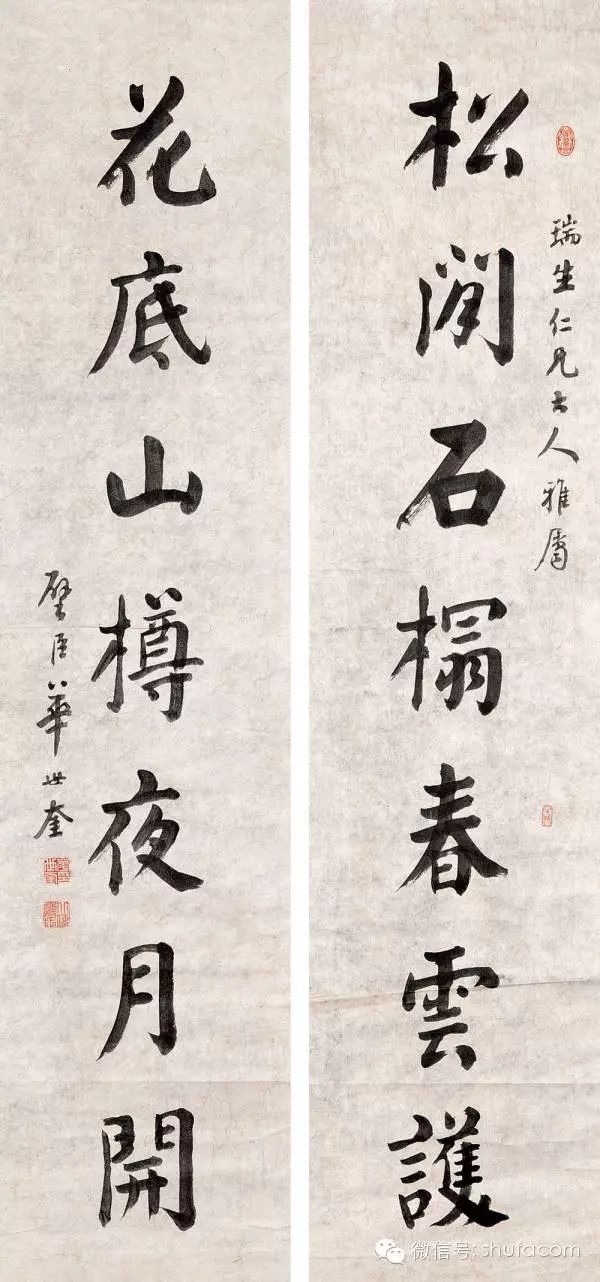 瑞生仁兄大人雅屬
松閒石榻春雲護
花底山樽夜月開
璧臣華世奎
微信号: shufacom